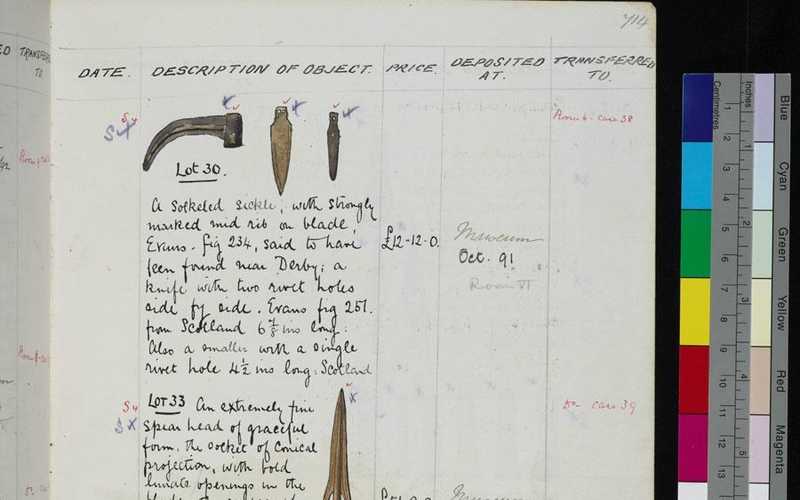 714
DATE. DESCRIPTION OF OBJECT. PRICE. DEPOSITED AT. TRANSFERRED TO.
Room 6. case 38
Lot 30.
A socketed sickle, with strongly
marked mid rib on blade,
Evans. fig 234, said to have
been found near Derby; a
knife with two rivet holes
side by side. Evans fig 251.
from Scotland 6 7/8 ins long.
Also a smaller with a single
rivet hole 4 1/2 ins long: Scotland
£12-12-0.
Museum
Oct. 91
Room VI
Lot 33 An extremely fine
spear head of graceful
form. the socket of conical
projection, with bold
lunate openings in the
Do case 39
Museum
Centimetres
Inches
1
2
3
4
5
6
7
8
9
10
11
12
13
1
2
3
4
5
Blue
Cyan
Green
Yellow
Red
Magenta